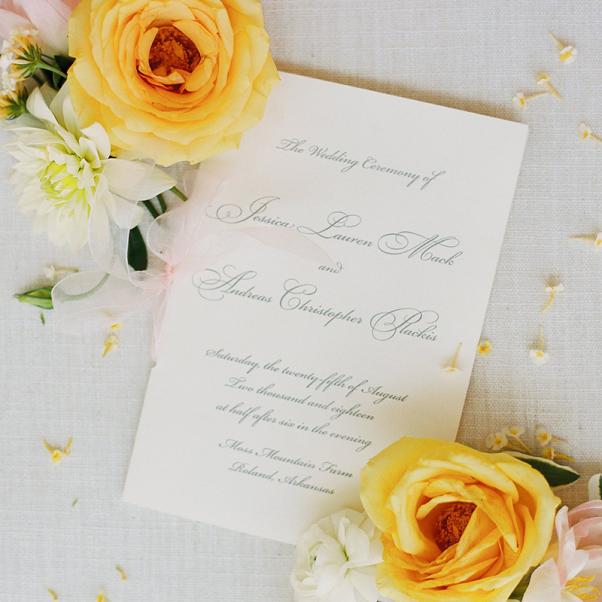 The Wedding Ceremony of
Jessica Lauren Mack
and
Andreas Christopher Plackis
Saturday, the twenty-fifth of August
Two thousand and eighteen
at half after six in the evening
Moss Mountain Farm
Roland, Arkansas